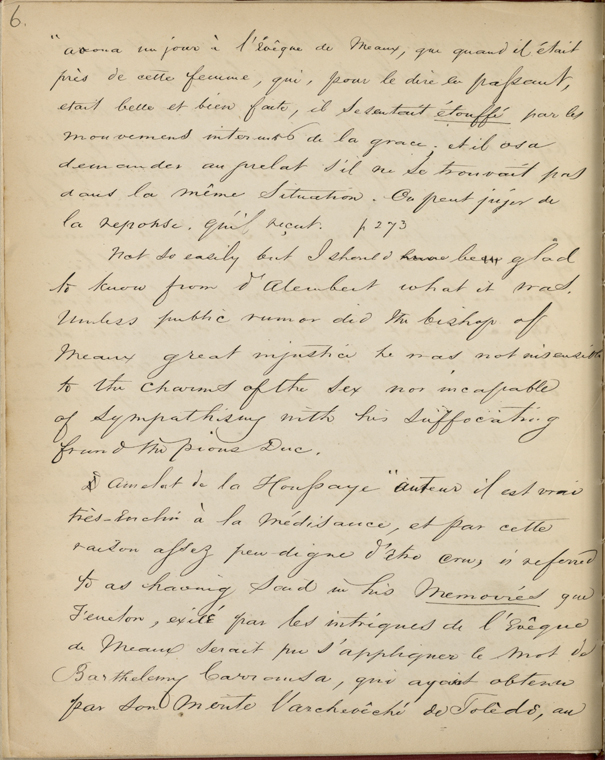 6.
"avoua un jour à l'Evêque de Meaux, que quand il était
près de cette femme, qui, pour le dire en passant,
etait belle et bien faite, il se sentait étouffé par les
mouvemens interieurs de la grace; et il osa
demander au prelat s'il ne se trouvait pas
dans la même situation. On peut juger de
la reponse qu'il reçut. p 273
Not so easily but I should be glad
to know from d'Alembert what it was.
Unless public rumor did the bishop of
Meaux great injustice he was not insensible
to the charms of the sex nor incapable
of sympathising with his suffocating
friend the pious Duc.
Amelot de la Houssaye "auteur il est vrai
très-enclin à la médisance, et par cette
raison assez peu digne d'être cru, is referred
to as having said in his Memoires que
Fenelon, exilé par les intrigues de l'Evêque
de Meaux serait pu s'appliquer le mot de
Barthelemy Carransa, qui ayant obtenu
par son merite l'archevêché de Tolède, au